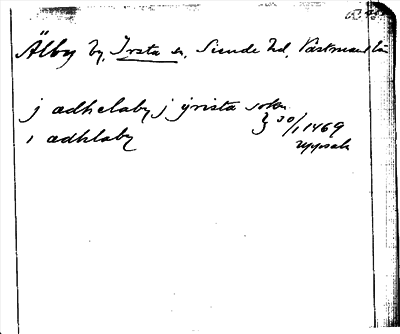 Älby by, Irsta sn, Siende hd, Västmanl. län
j adhelaby j yrista sokn
i adhlaby } 30/1 1469
Uppsala